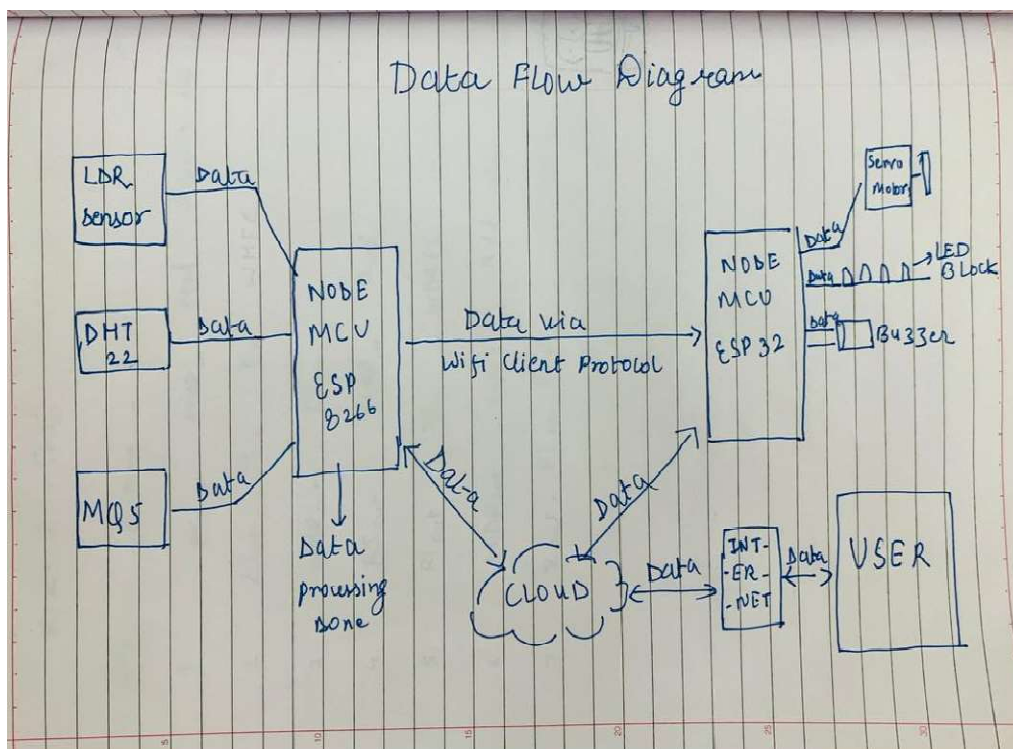 Data Flow Diagram
LDR
sensor
Data
DHT
22
Data
MQ5
Data
NODE
MCU
ESP
8266
Data
processing
Done
Data via
Wifi Client Protocol
NODE
MCU
ESP32
Data
Servo
Motor
Data
LED
Block
Data
Buzzer
Data
Data
CLOUD
Data
INT-
-ER-
-NET
Data
USER
5
10
15
20
25
30